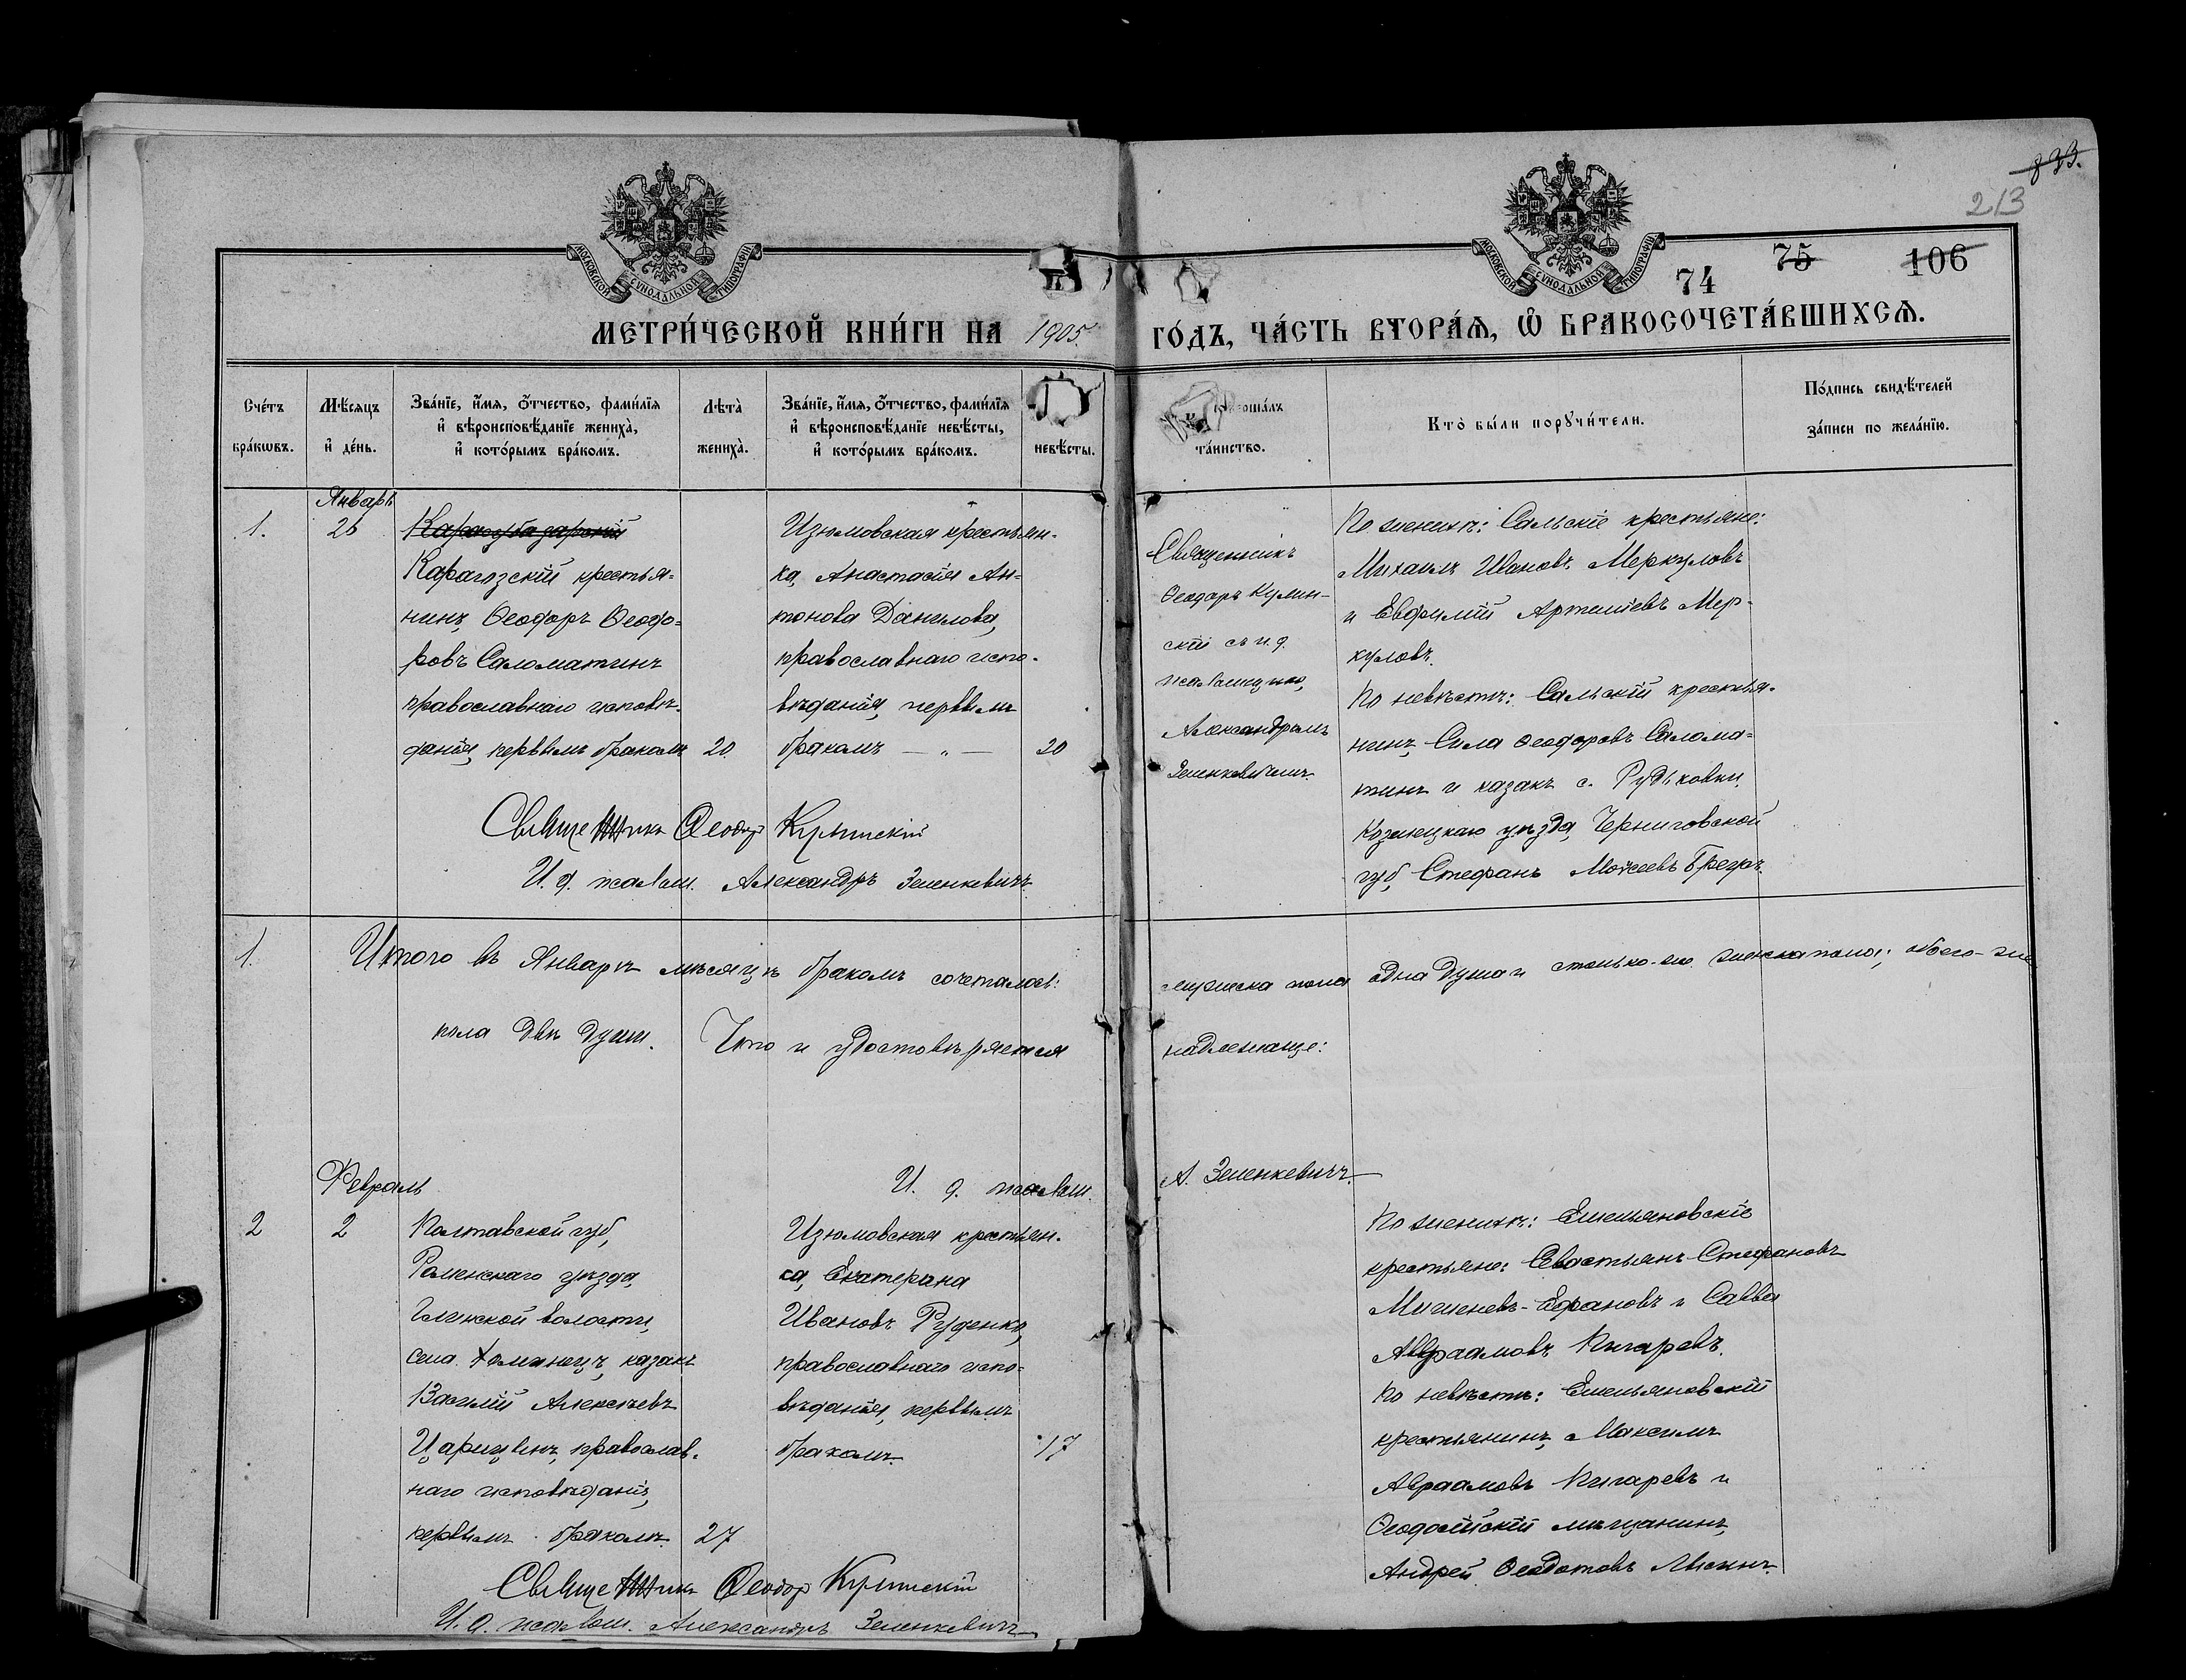 833.
213
МОСКОВСКОЙ СѴНОДАЛЬНОЙ ТИПОГРАФІИ
МОСКОВСКОЙ СѴНОДАЛЬНОЙ ТИПОГРАФІИ
74 75 106
МЕТРИ́ЧЕСКОЙ КНИ́ГИ НА 1905. ГО́ДЪ, ЧА́СТЬ ВТОРА́Ѧ, Ѽ БРАКОСОЧЕТА́ВШИХСѦ.
Сче́тъ
бра́кѡвъ.
Мѣ́сяцъ
и҆ де́нь.
Зва́нїе, и҆́мя, ѻ҆́тчество, фами́лїя
и҆ вѣроисповѣ́данїе жениха̀,
и҆ кото́рымъ бра́комъ.
Лѣта̀
жениха̀.
Зва́нїе, и҆́мя, ѻ҆́тчество, фами́лїя
и҆ вѣроисповѣ́данїе невѣ́сты,
и҆ кото́рымъ бра́комъ.
невѣ́сты.
та́инство.
Кто̀ бы́ли порꙋчи́тели.
По́дпись свидѣ́телей
за́писи по жела́нїю.
Январь
1.
26
Карагозскій крестья=
нинъ, Ѳеодоръ Ѳеодо=
ровъ Саломатинъ
православнаго исповѣ-
данія, первымъ бракомъ 20.
Изюмовская крестьян-
ка, Анастасія Ан-
тонова Данилова,
православнаго испо-
вѣданія, первымъ
бракомъ — „ — 20
Священникъ
Ѳеодоръ
скій съ и. д.
псаломщика,
Александромъ
Зеленкевичемъ.
По женихѣ: Сальскіе крестьяне:
Михаилъ Ивановъ Меркуловъ
и Евфимій Артеміевъ Мер-
куловъ.
По невѣстѣ: Сальскій крестья-
нинъ, Сила Ѳеодоровъ Салома=
тинъ и казакъ с. Рудьковки,
Козелецкаго уѣзда, Черниговской
губ, Стефанъ Моисеевъ
Священникъ Ѳеодоръ
И. д. псалом. Александръ Зеленкевичъ
1. Итого въ Январѣ мѣсяцѣ бракомъ сочеталось: мужеска пола одна душа и столько-же женска пола; обоего-же
пола двѣ души. Что и удостовѣряется надлежаще:
И. д. псалом. А. Зеленкевичъ
Февраль
2
2
Полтавской губ,
Роменскаго уѣзда,
Глинской волости,
села казакъ
Василій Алексѣевъ
православ-
наго исповѣданія,
первымъ бракомъ 27
Изюмовская крестьян-
ка, Екатерина
Ивановъ Руденко,
православнаго испо=
вѣданія, первымъ
бракомъ. 17
По женихѣ: Емельяновскіе
крестьяне: Севастьянъ Стефановъ
и Савва
Авраамовъ Пигаревъ.
По невѣстѣ: Емельяновскій
крестьянинъ, Максимъ
Авраамовъ Пигаревъ и
Ѳеодосійскій мѣщанинъ,
Андрей Ѳеодотовъ
Священникъ Ѳеодоръ
И. д. псалом. Александръ Зеленкевичъ